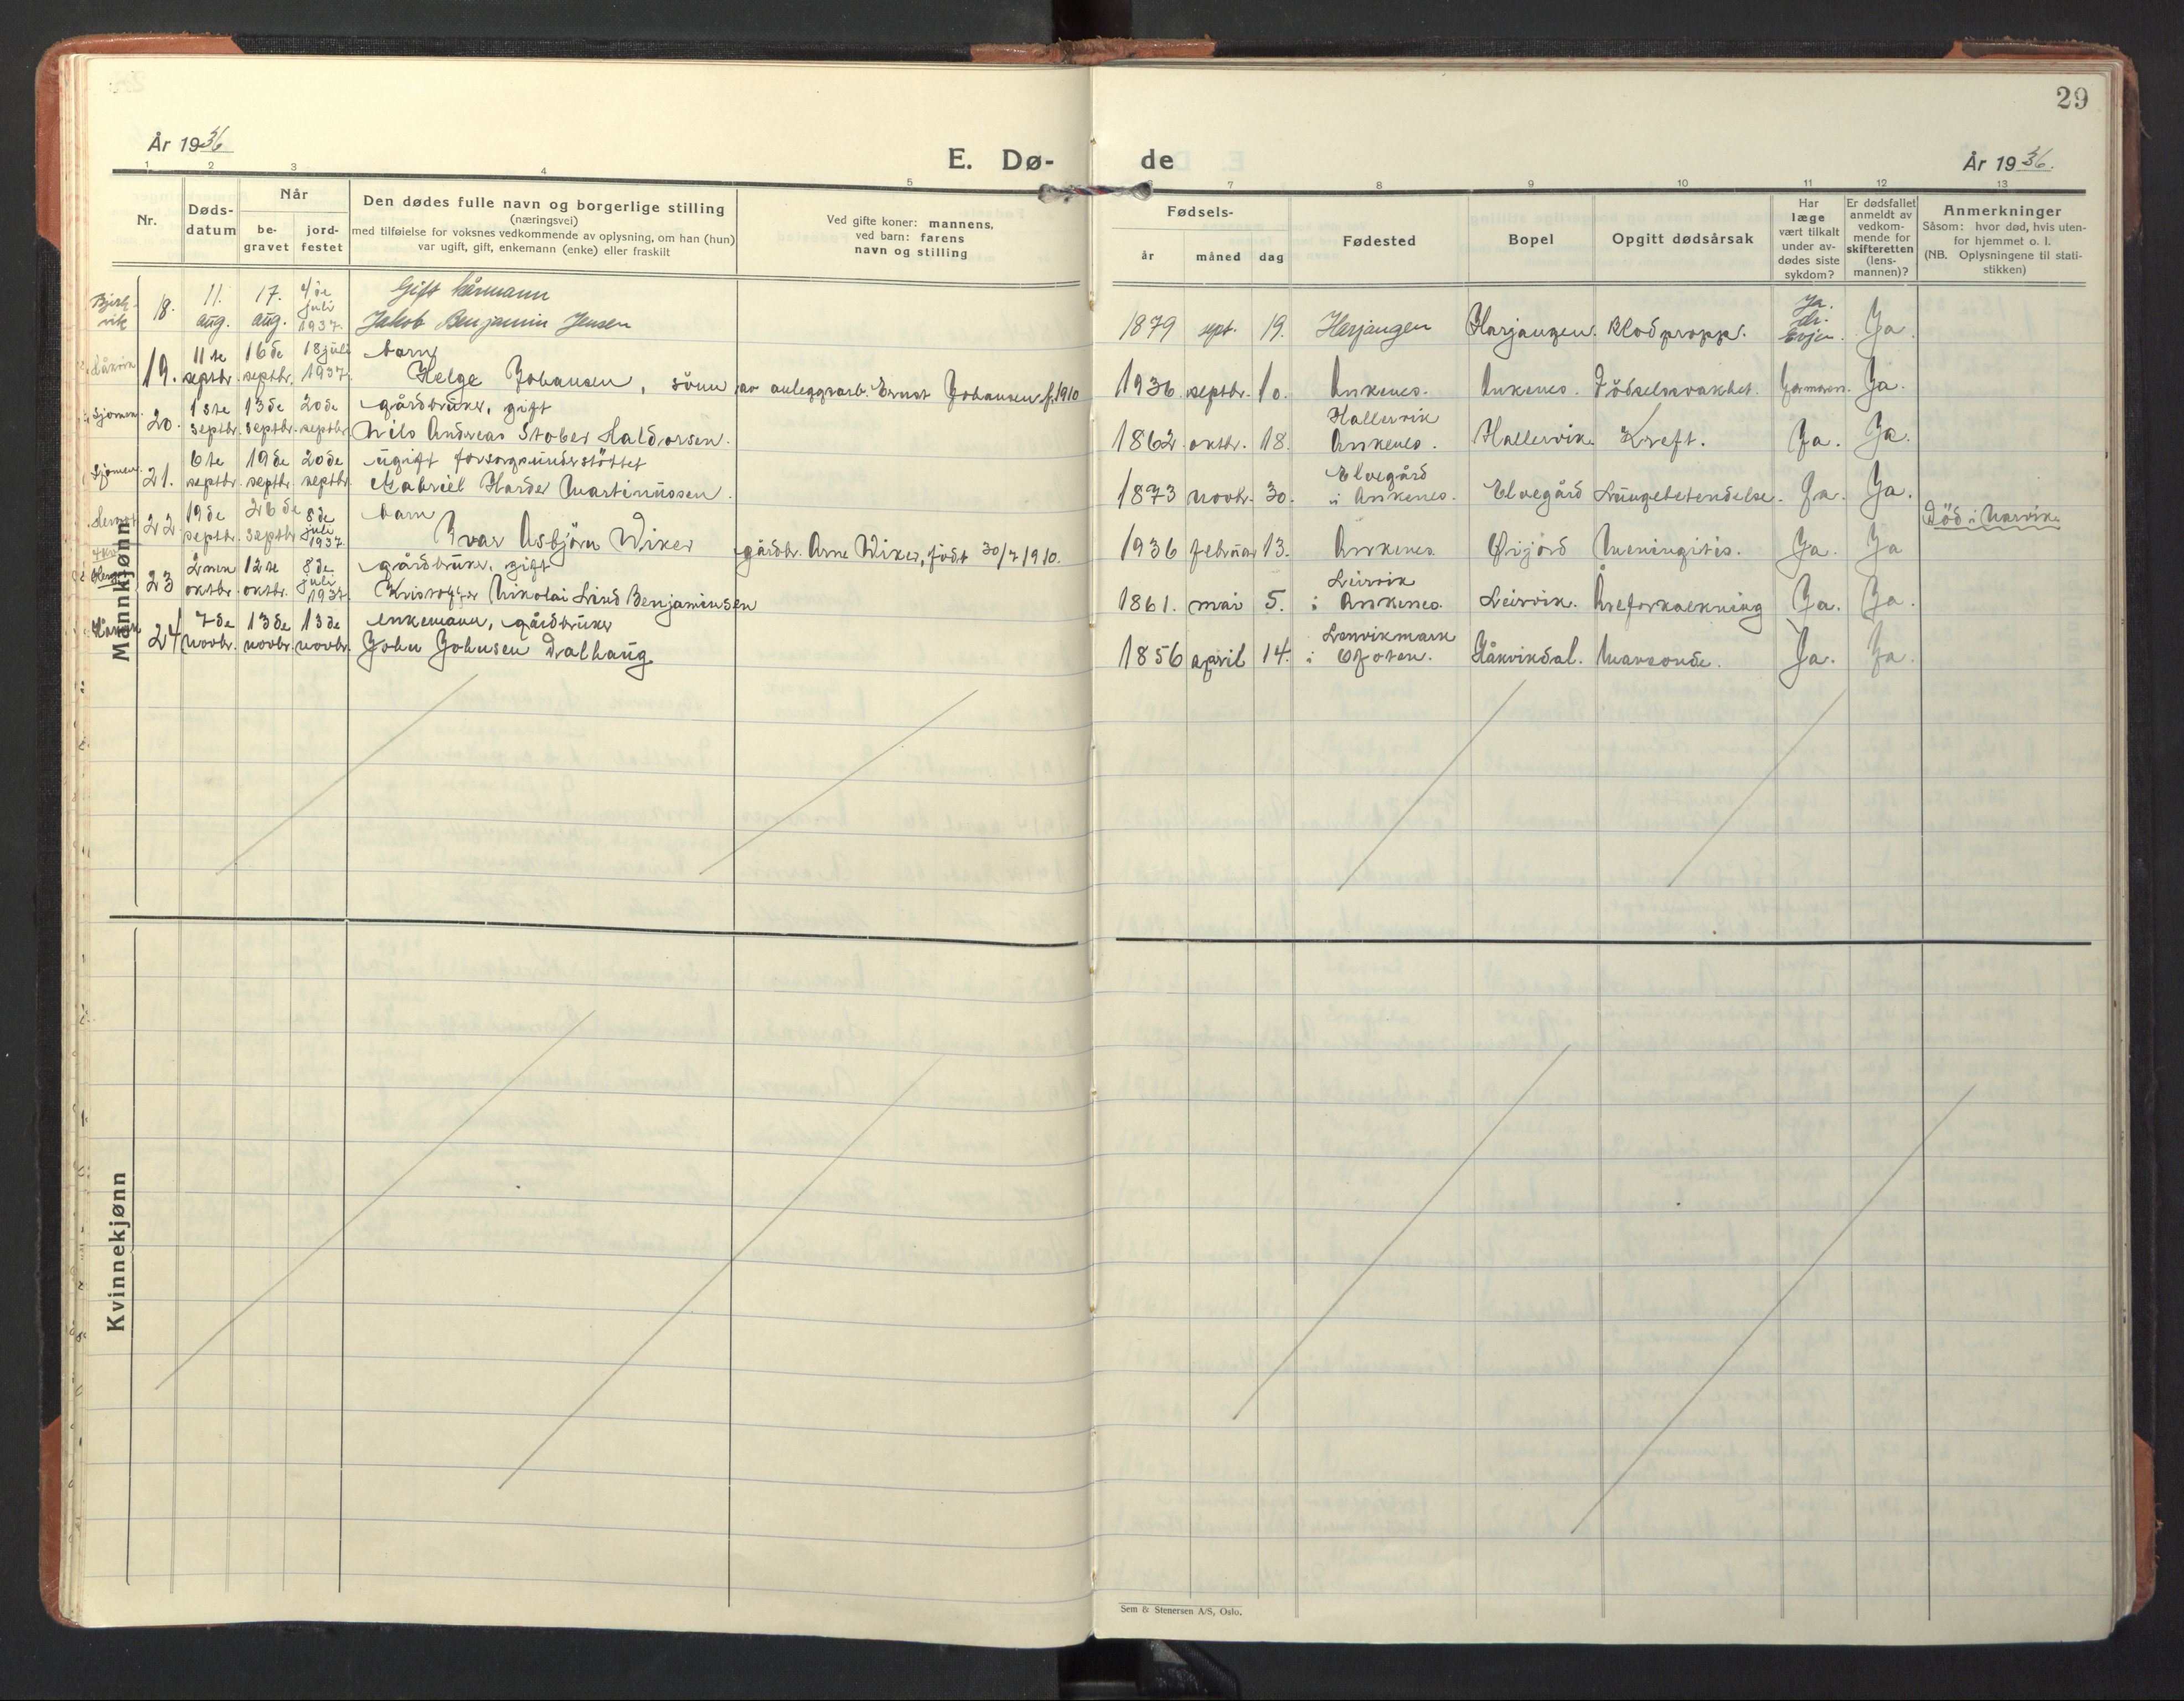 29
År 1936
E. Dø-
de
År 1936.
1 2 3 4 5 6 7 8 9 10 11 12 13
Nr.
Døds-
datum
Når
be-
gravet
jord-
festet
Den dødes fulle navn og borgerlige stilling
(næringsvei)
med tilføielse for voksnes vedkommende av oplysning, om han (hun)
var ugift, gift, enkemann (enke) eller fraskilt
Ved gifte koner: mannens,
ved barn: farens
navn og stilling
Fødsels-
år måned dag
Fødested
Bopel
Opgitt dødsårsak
Har
læge
vært tilkalt
under av-
dødes siste
sykdom?
Er dødsfallet
anmeldt av
vedkom-
mende for
skifteretten
(lens-
mannen)?
Anmerkninger
Såsom: hvor død, hvis uten-
for hjemmet o. l.
(NB. Oplysningene til stati-
stikken)
Mannkjønn
Bjerk-
vik
18.
11.
aug.
17.
aug.
4de
juli
1937.
Gift kårmann
Jakob Benjamin Jensen
1879 sept. 19. Herjangen Harjangen. Blodpropp.
Ja.
dr.
Evjen.
Ja
Håkvik
19.
11te
septbr.
16de
septbr.
18 juli
1937.
barn
Helge Johansen, sönn av anleggsarb. Ernst Johansen f. 1910
1936 septbr. 10. Ankenes. Ankenes. Födselssvakhet. Jormoren. Ja.
Sjomen.
20.
1ste
septbr.
13de
septbr.
20de
septbr.
gårdbruker, gift
Nils Andreas Stober Haldorsen.
Hallervik
1862 oktbr. 18. Ankenes. Hallervik Kreft. Ja. Ja.
Sjomen.
21.
6te
septbr.
19de
septbr.
20de
septbr.
ugift forsorgsunderstöttet
Gabriel Harder Martinussen.
Elvegård
1873 novbr. 30. i Ankenes. Elvegård Lungebetendelse. Ja. Ja.
22
19de
septbr.
26de
septbr.
8de
juli
1937.
barn
Ivar Asbjörn Wiker
gårdbr. Arne Wiker, födt 30/7 1910.
1936 februar 13. Ankenes. Öijord Meningitis. Ja. Ja
Död i Narvik.
23
2nen
oktbr.
12te
oktbr.
8de
juli
1937.
gårdbruker, gift
Kristoffer Nikolai Lind Benjaminsen
Leirvik
1861. mai 5. i Ankenes. Leirvik. Åreforkalkning Ja. Ja.
Håkvik
24
7de
novbr.
13de
novbr.
13de
novbr.
enkemann, gårdbruker
John Johnsen Dalhaug.
Lenvikmark
1856 april 14. i Ofoten. Håkvikdal. Mavsonde. Ja. Ja.
Kvinnekjønn
Sem & Stenersen A/S, Oslo.